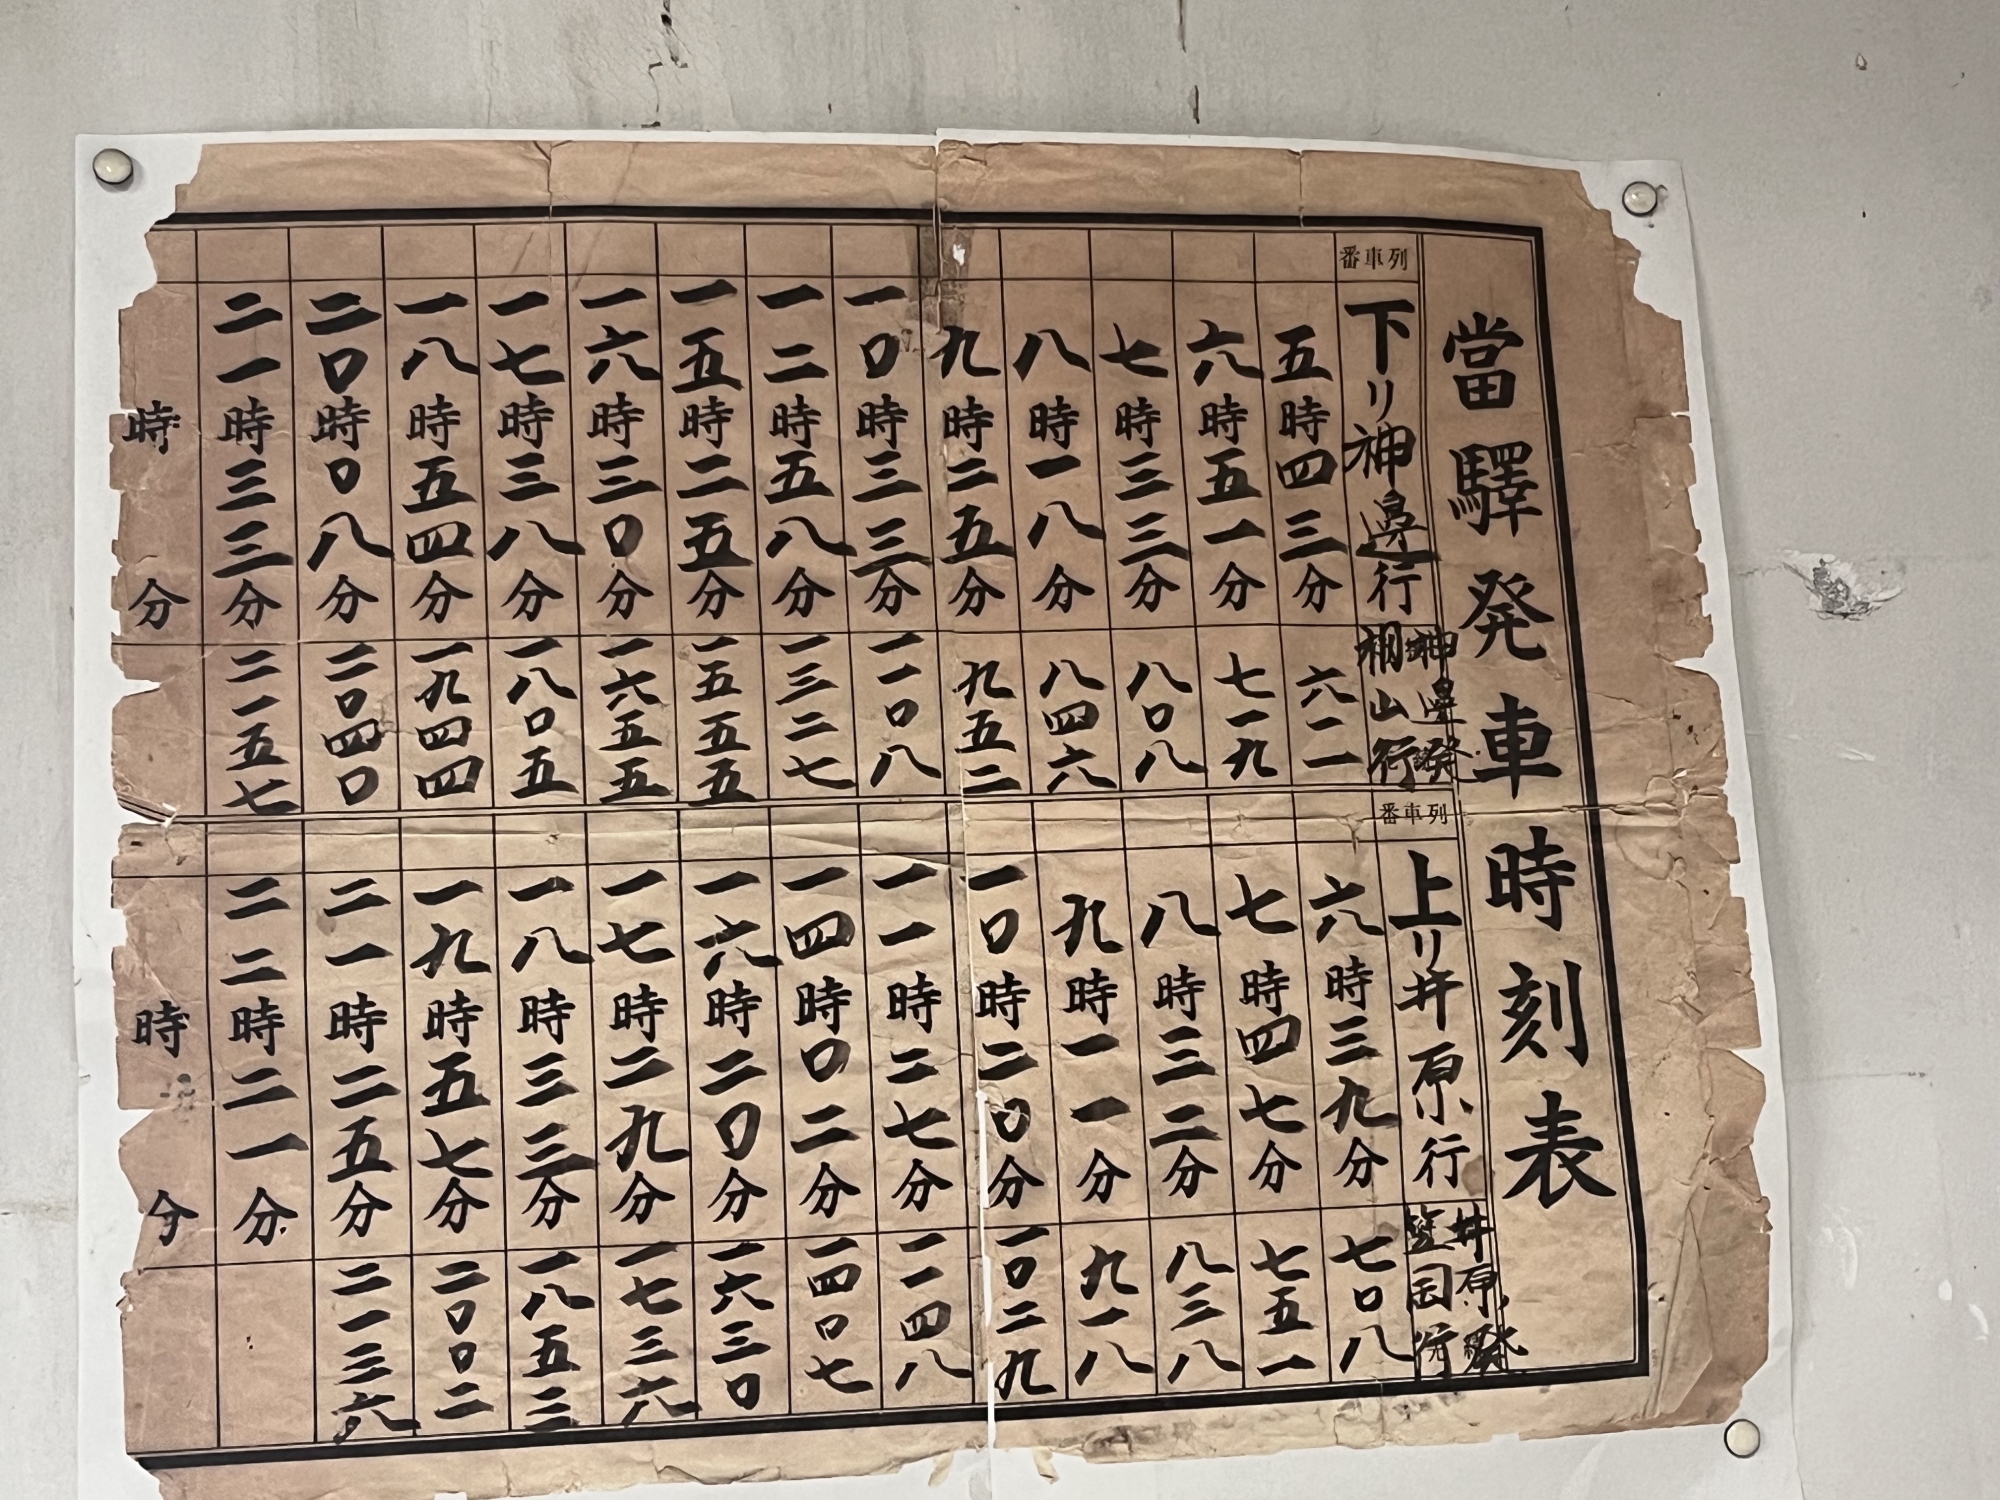 當驛発車時刻表
列車番
下リ神邊行
神邊發
福山行
五時四三分
六二一
六時五一分
七一九
七時三三分
八〇八
八時一八分
八四六
九時二五分
九五二
一〇時三三分
一一〇八
一二時五八分
一三二七
一五時二五分
一五五五
一六時三〇分
一六五五
一七時三八分
一八〇五
一八時五四分
一九四四
二〇時〇八分
二〇四〇
二一時三三分
二一五七
時 分
列車番
上リ井原行
井原發
笠岡行
六時三九分
七〇八
七時四七分
七五一
八時三二分
八三八
九時一一分
九一八
一〇時二〇分
一〇二九
一一時二七分
一一四八
一四時〇二分
一四〇七
一六時二〇分
一六三〇
一七時二九分
一七三六
一八時三三分
一八五三
一九時五七分
二〇〇二
二一時二五分
二一三六
二二時二一分
時 分